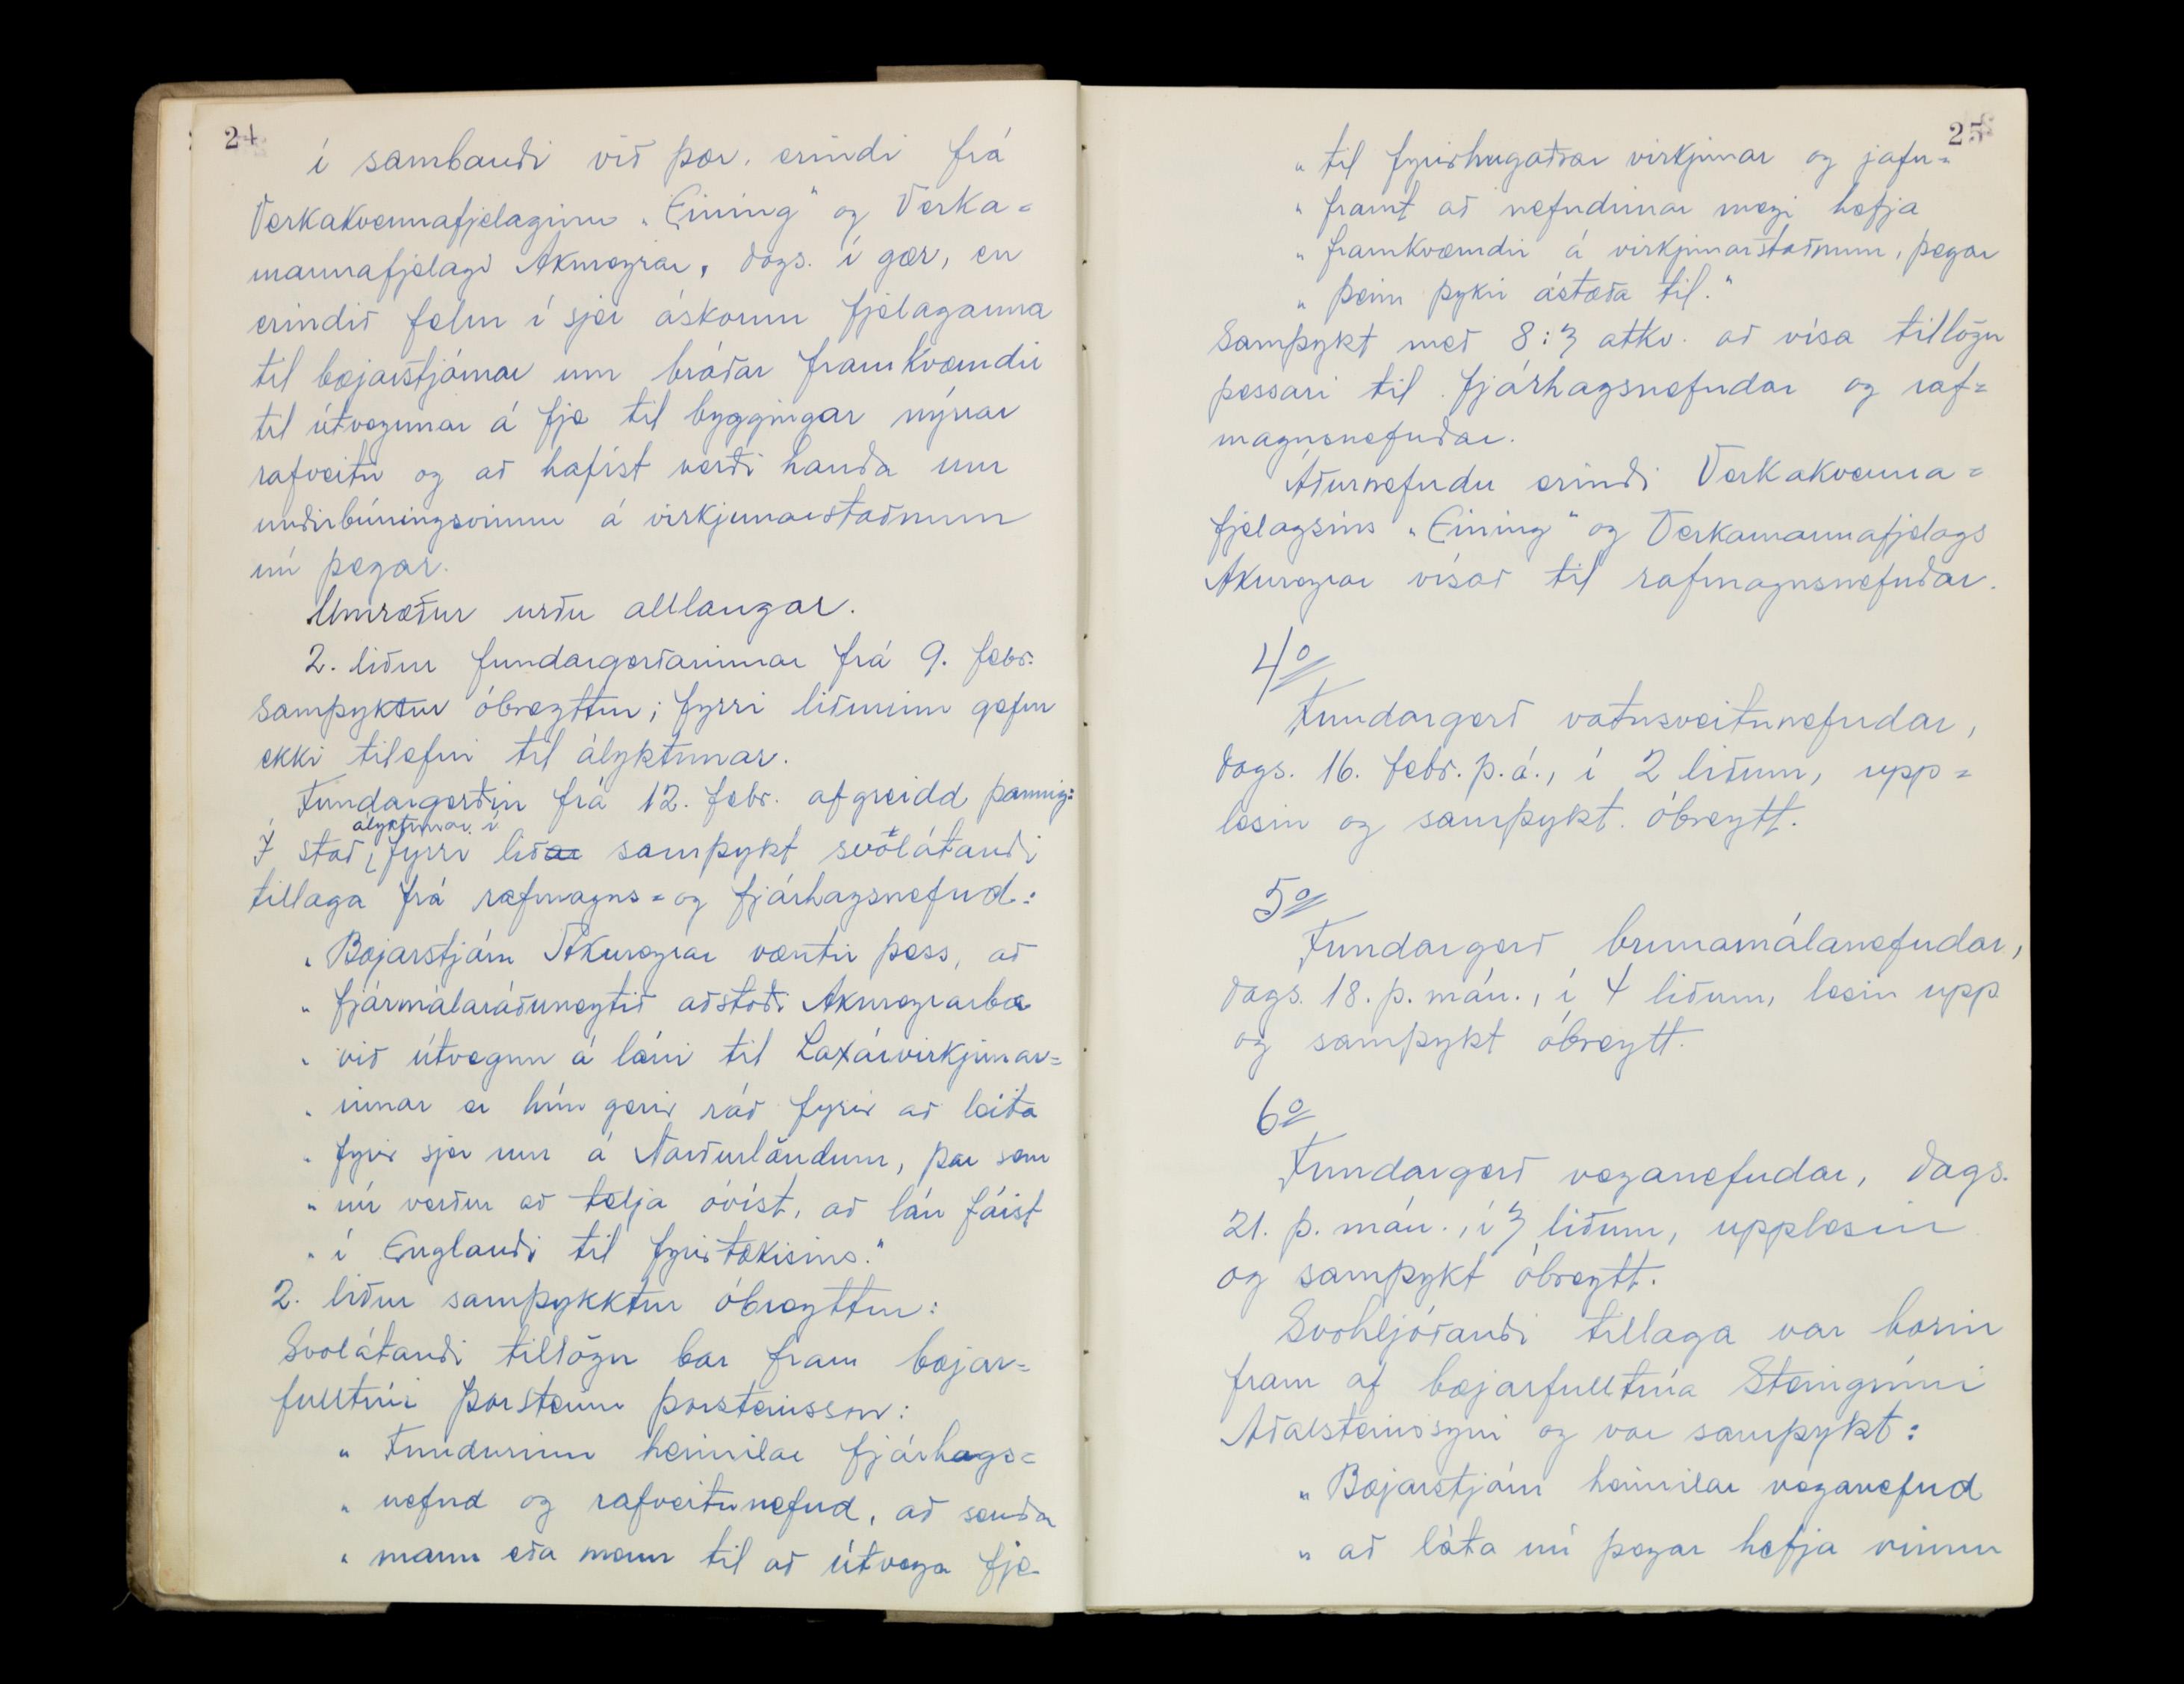 24
í sambandi við þær, erindi frá
Verkakvennafjelaginu „Eining" og Verka=
mannafjelagi Akureyrar, dags. í gær, en
erindið felur í sjer áskorun fjelaganna
til bæjarstjórnar um bráðar framkvæmdir
til útvegunar á fje til byggingar nýrrar
rafveitu og að hafist verði handa um
undirbúningsvinnu á virkjunarstaðnum
nú þegar.
Umræður urðu alllangar.
2. liður fundargerðarinnar frá 9. febr.
samþyktur óbreyttur; fyrri liðurinn gefur
ekki tilefni til ályktunar.
Fundargerðin frá 12. febr. afgreidd þannig:
Í stað ályktunar í fyrri lið samþykt svolátandi
tillaga frá rafmagns= og fjárhagsnefnd:
„ Bæjarstjórn Akureyrar væntir þess, að
„ fjármálaráðuneytið aðstoði Akureyrarbæ
„ við útvegun á láni til Laxárvirkjunar=
„ innar er hún gerir ráð fyrir að leita
„ fyrir sjer um á Norðurlöndum, þar sem
„ nú verður að telja óvíst, að lán fáist
„ í Englandi til fyrirtækisins."
2. liður samþykktur óbreyttur:
Svolátandi tillögu bar fram bæjar=
fulltrúi Þorsteinn Þorsteinsson:
„ Fundurinn heimilar fjárhags=
„ nefnd og rafveitunefnd, að senda
„ mann eða menn til að útvega fje
25
„ til fyrirhugaðrar virkjunar og jafn=
„ framt að nefndirnar megi hefja
„ framkvæmdir á virkjunarstaðnum, þegar
„ þeim þykir ástæða til."
Samþykt með 8:3 atkv. að vísa tillögu
þessari til fjárhagsnefndar og raf=
magnsnefndar.
Áðurnefndu erindi Verkakvenna=
fjelagsins „Eining" og Verkamannafjelags
Akureyrar vísað til rafmagnsnefndar.
4º
Fundargerð vatnsveitunefndar,
dags. 16. febr. þ.á., í 2 liðum, upp=
lesin og samþykt óbreytt.
5º
Fundargerð brunamálanefndar,
dags. 18. þ. mán., í 4 liðum, lesin upp
og samþykt óbreytt.
6º
Fundargerð veganefndar, dags.
21. þ. mán., í 3 liðum, upplesin
og samþykt óbreytt.
Svohljóðandi tillaga var borin
fram af bæjarfulltrúa Steingrími
Aðalsteinssyni og var samþykt:
„ Bæjarstjórn heimilar veganefnd
„ að láta nú þegar hefja vinnu